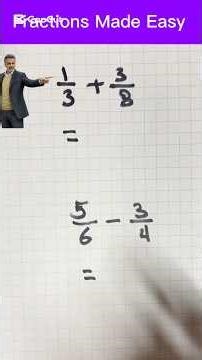 Fractions Made Easy
1/3 + 3/8
=
5/6 - 3/4
=